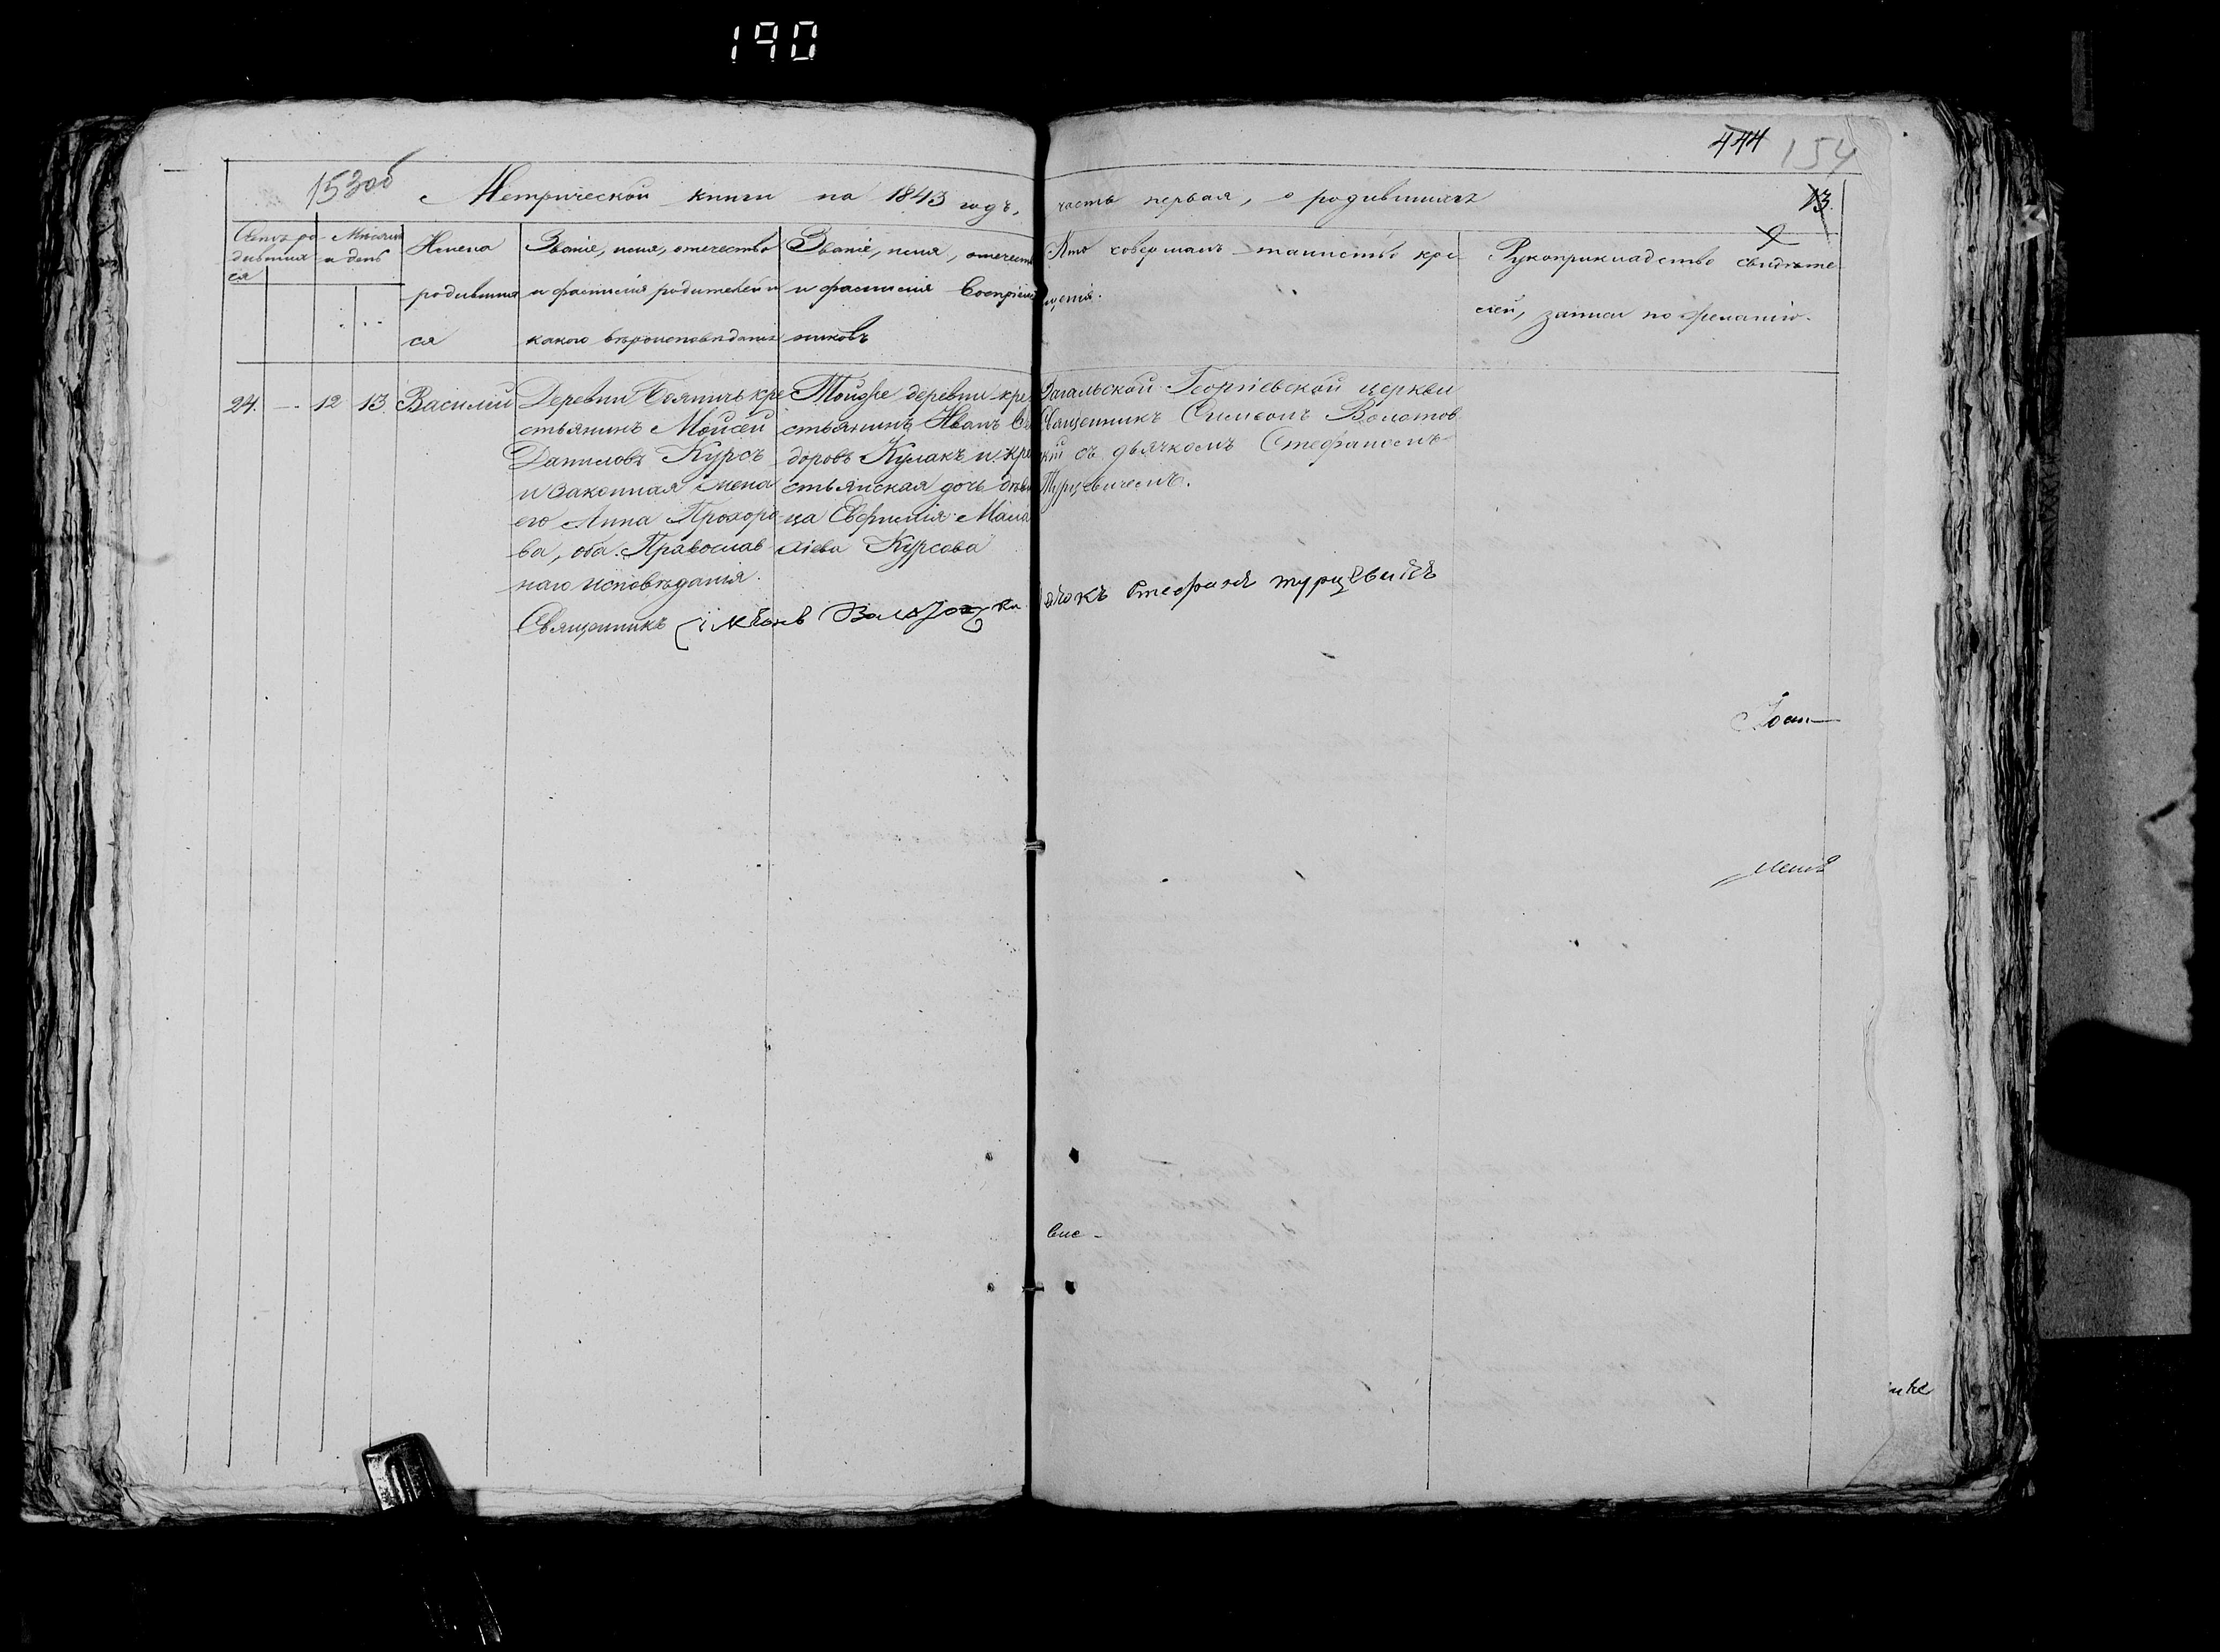 190
444 154
153об Метрической книги на 1843 годъ, часть первая, о родившихся 13.
Счетъ ро-
дивших
ся
Месяцъ
и день
Имена
родивших
ся
Званіе, имя, отечество
и фамилія родителей и
какого вѣроисповѣданія
Званіе, имя, отечест
и фамилія Воспріем
никовъ
Кто совершалъ таинство кре
щенія.
Рукоприкладство свидѣте
лей, записи по желанію.
24. — 12 13. Василій
Деревни кре
стьянинъ Мойсей
Даниловъ Курсъ
и законная жена
его Анна Прохоро
ва, оба Православ
наго исповѣданія.
Тойже деревни кре
стьянинъ Иванъ Ѳе
доровъ Кулакъ и кре
стьянская дочь дѣви
ца Евфимія Мала
хіева Курсова
Загальской Георгіевской церкви
Священникъ Симеонъ Волотов
кій съ дьячкомъ Стефаномъ
Турцевичемъ.
Священникъ
Стефанъ Турцевичъ